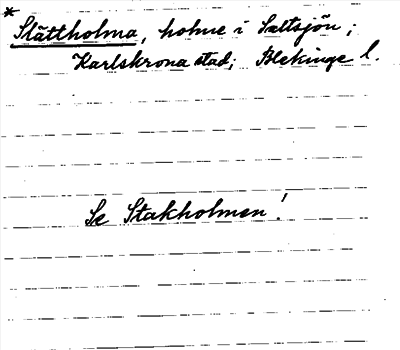 * Slättholma, holme i Saltsjön;
Karlskrona stad; Blekinge l.
Se Stakholmen!